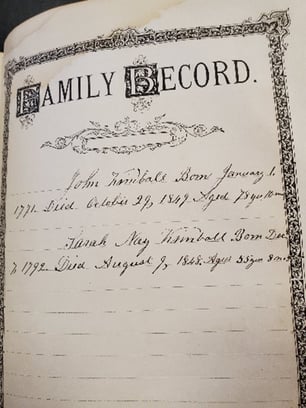 FAMILY RECORD.
John Kimball Born January 1.
1771. Died October 29, 1849. Aged 78 yrs 10 mo
Sarah Nay Kimball Born Dec
1792. Died August 9, 1848. Aged 55 yrs 8 mo